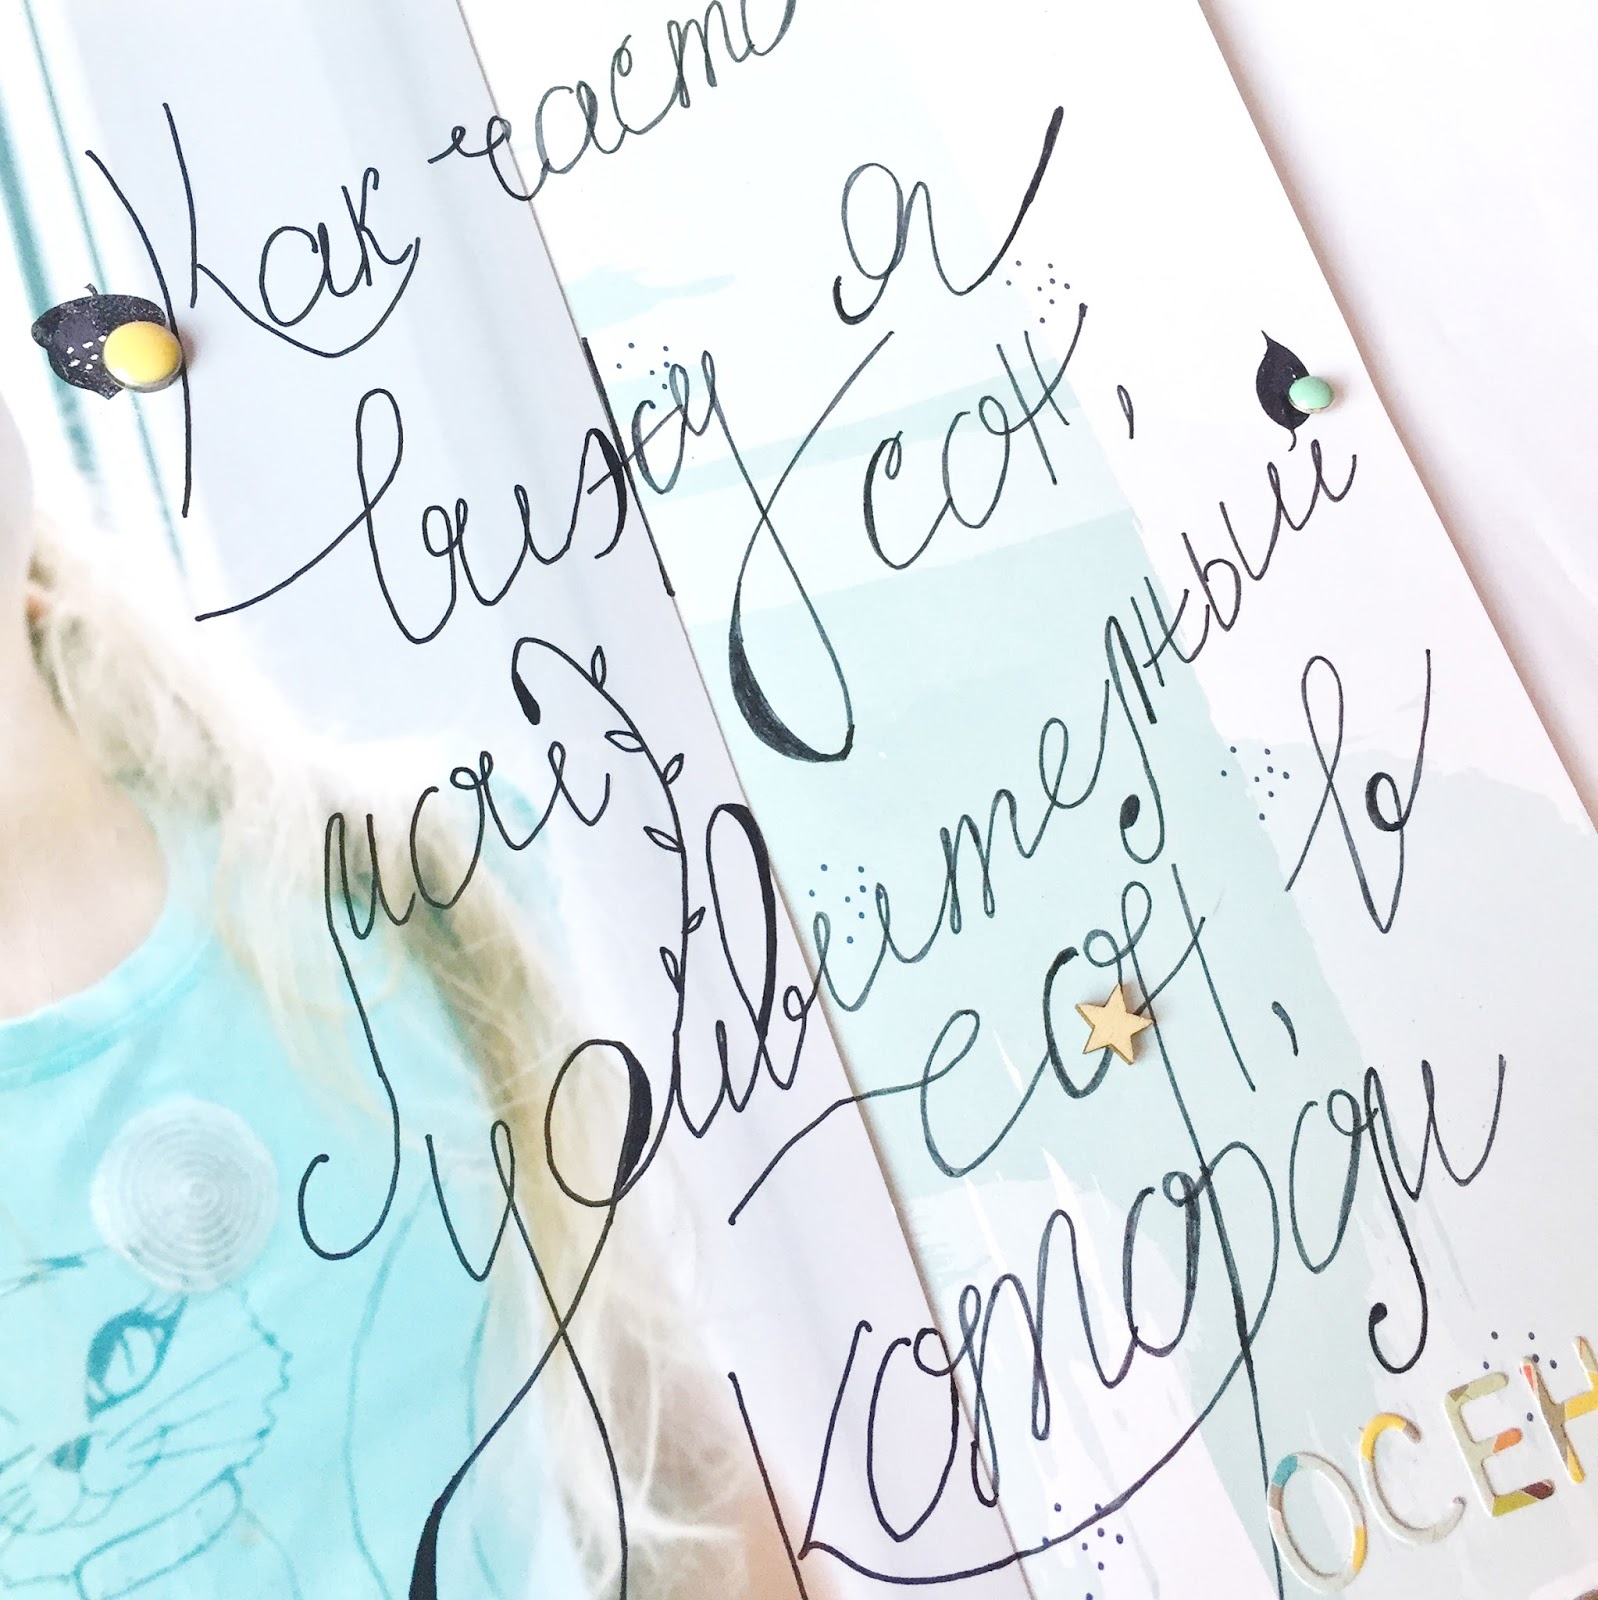 Как часто я
вижу сон,
мой удивительный
сон, в
котором
ОСЕН